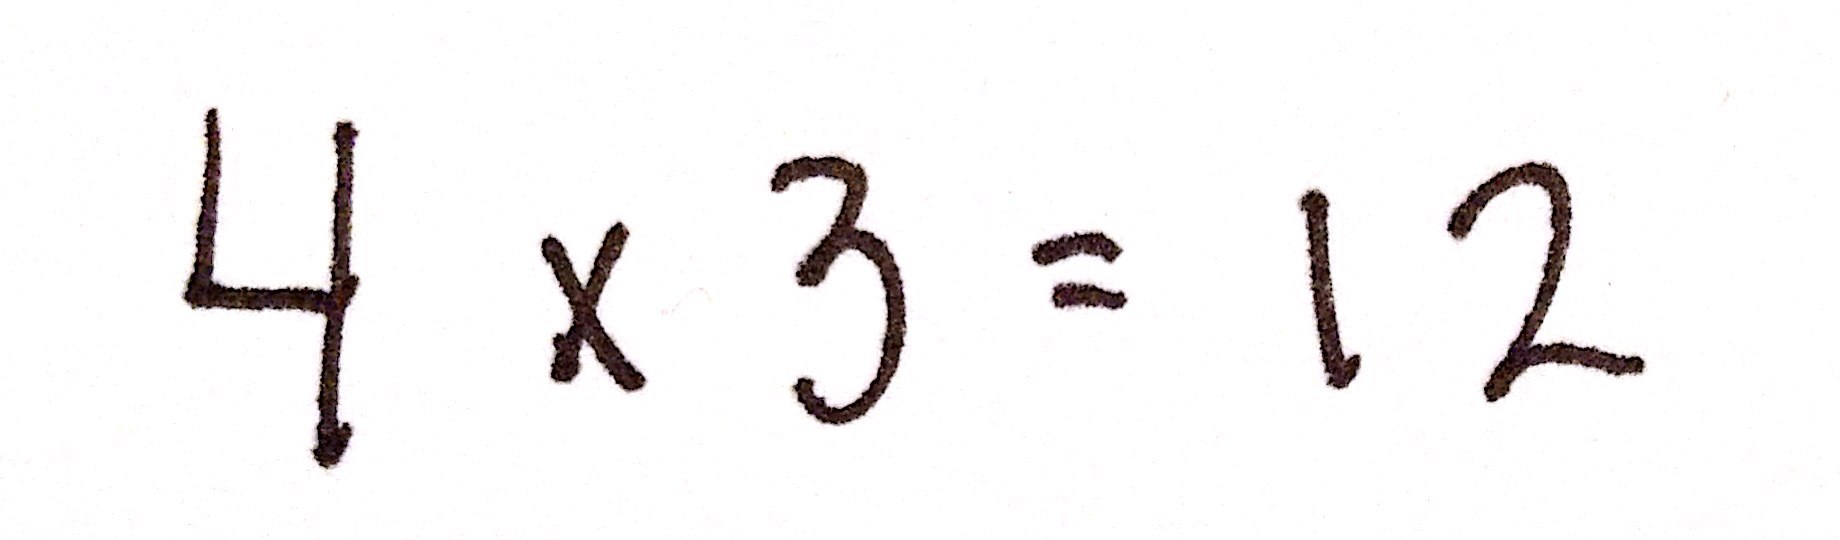 4 x 3 = 12